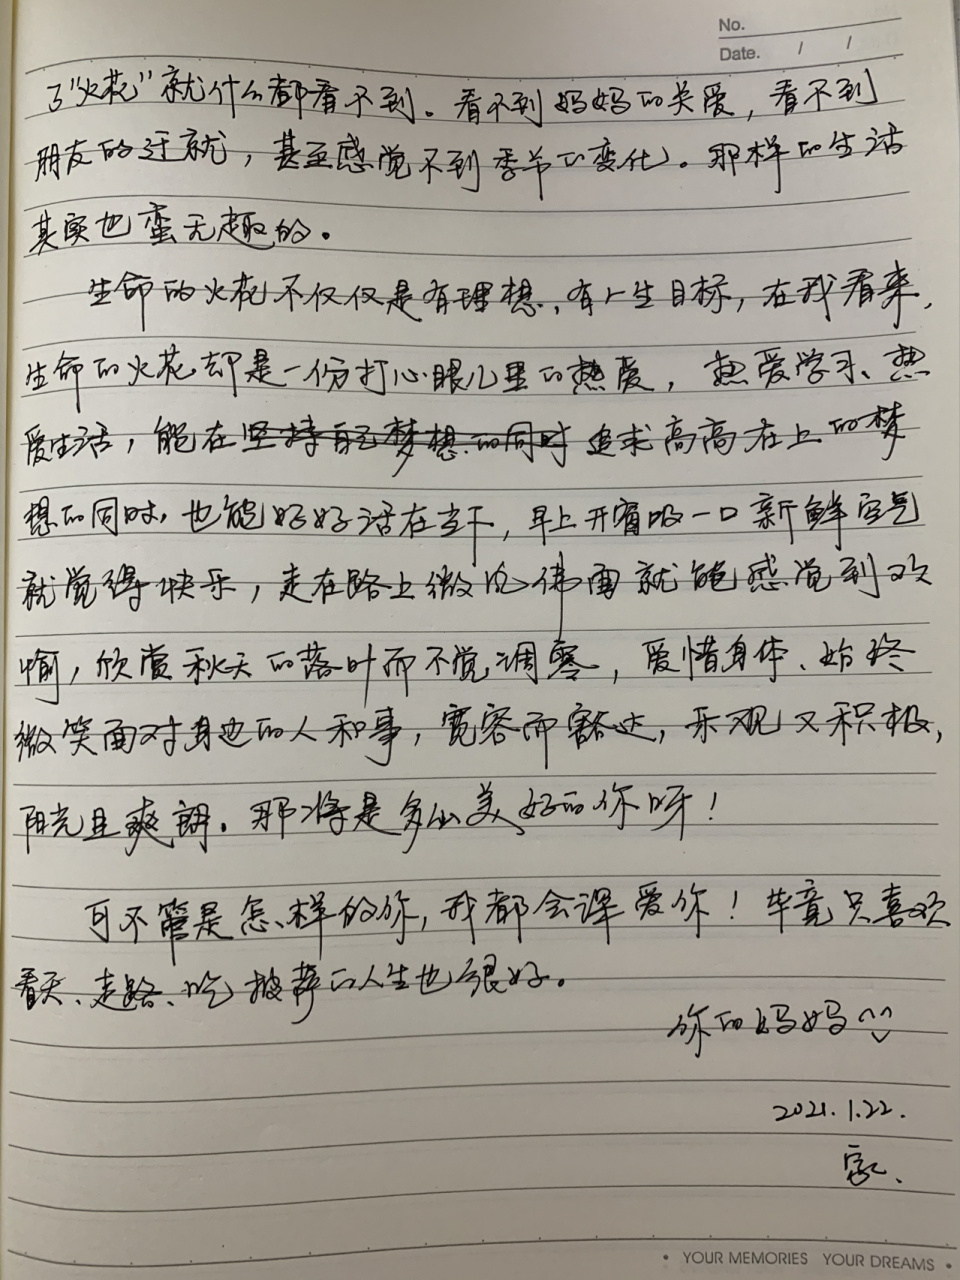 No.
Date. / /
了“火花”就什么都看不到。看不到妈妈的关爱，看不到
朋友的迁就，甚至感觉不到季节的变化。那样的生活
其实也蛮无趣的。
生命的火花不仅仅是有理想、有人生目标，在我看来，
生命的火花却是一份打心眼儿里的热爱，热爱学习、热
爱生活，能在坚持自己梦想的同时追求高高在上的梦
想的同时，也能好好活在当下，早上开窗吸一口新鲜空气
就觉得快乐，走在路上微风佛面就能感觉到欢
愉，欣赏秋天的落叶而不觉凋零，爱惜身体、始终
微笑面对身边的人和事，宽容而豁达，乐观又积极，
阳光且爽朗。那将是多么美好的你呀！
可不管是怎样的你，我都会深爱你！毕竟只喜欢
看天、走路、吃披萨的人生也很好。
你的妈妈
2021.1.22.
家、
YOUR MEMORIES YOUR DREAMS